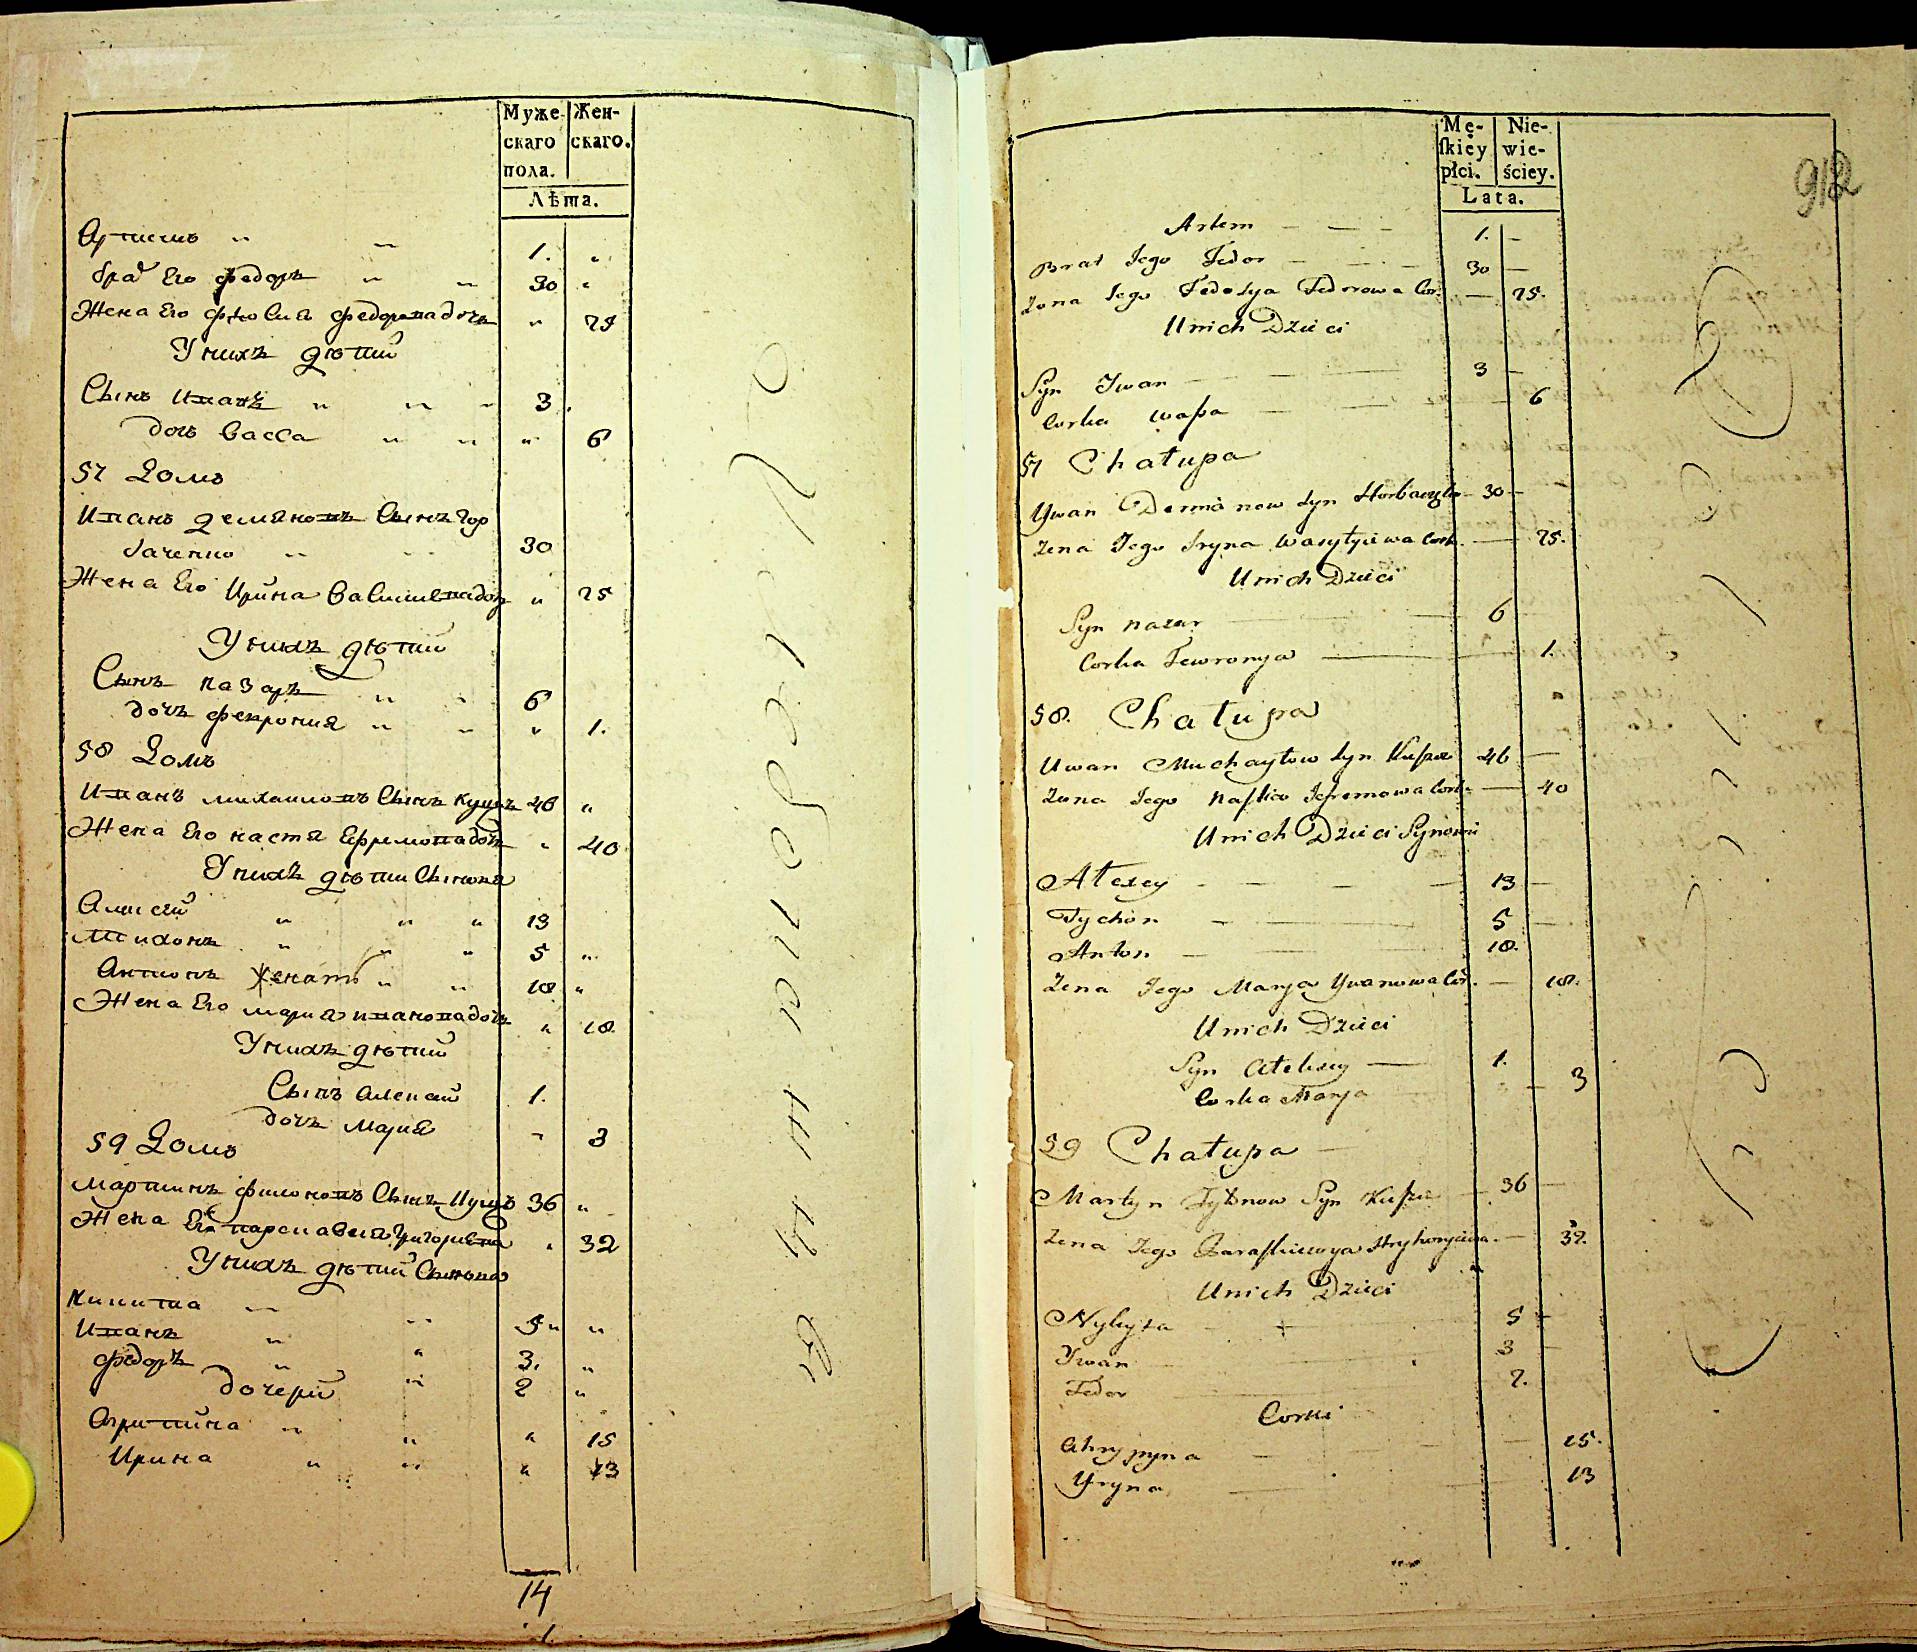 Муже- Жен-
скаго скаго.
пола.
Лѣта.
Артемъ " " 1. "
братъ Его федоръ " " 30 "
Жена Его федосия федорова дочь " 25
Унихъ дѣтий
Сынъ Иванъ " " " 3.
дочь Васса " " " 6
57 Домъ
Иванъ демяновъ Сынъ Гор
баченко " 30
Жена Его Ирина Василиева доч " 25
Унихъ дѣтий
Сынъ назаръ " " 6
дочъ феврония " " " 1.
58 Домъ
Иванъ михаиловъ Сынъ Куцъ 46 "
Жена Его настя Ефремова дочь " 40
Унихъ дѣтий Сынови
Алексей " " " 13
Тихонъ " " " 5 "
Антонъ женатъ " " 18 "
Жена Его мария иванова дочь " 18.
Унихъ дѣтий
Сынъ алексий 1.
дочъ мария " 3
59 Домъ
мартинъ филоновъ Сынъ Куцъ 36 "
Жена Его парскавия Григориева " 32
Унихъ дѣтий Сынови
Никита " " 5 " "
Иванъ " " 3. "
федоръ " " 2 "
дочери
Агрипина " " " 15
Ирина " " " 13
14
Mę- Nie-
ſkiéy wie-
płci. ściey.
Lata.
912
Artem 1. -
Brat Jego Fedor 30 -
Zona Jego Fedosya Fedorowa Cor. - 25.
Unich Dzieci
Syn Jwan 3 -
Corka Waſsa 6
57 Chałupa
Ywan Demianow Syn Horbaczenko - 30 -
Zena Jego Jryna Wasylyiewa Cork. - 25.
Unich Dzieci
Syn nazar 6
Corka Fewronya 1.
58. Chałupa
Uwan Muchayłow Syn Kuſza 46 -
Zona Jego Naſtia Jefremowa Cork. - 40
Unich Dzieci Synowi
Alexey 13 -
Tychon 5 -
Anton 18.
Zena Jego Marya Ywanowa Cor. - 18.
Unich Dzieci
Syn Alekſey 1.
Corka Marya - 3
59 Chałupa
Martyn Fylonow Syn Kuſza 36 -
Zena Jego Paraſkiewya Hryhoryiewa. - 32.
Unich Dzieci
Nykyta 5 -
Jwan 3 -
Fedor 2.
Corki
Ahrypyna 15.
Yryna 13